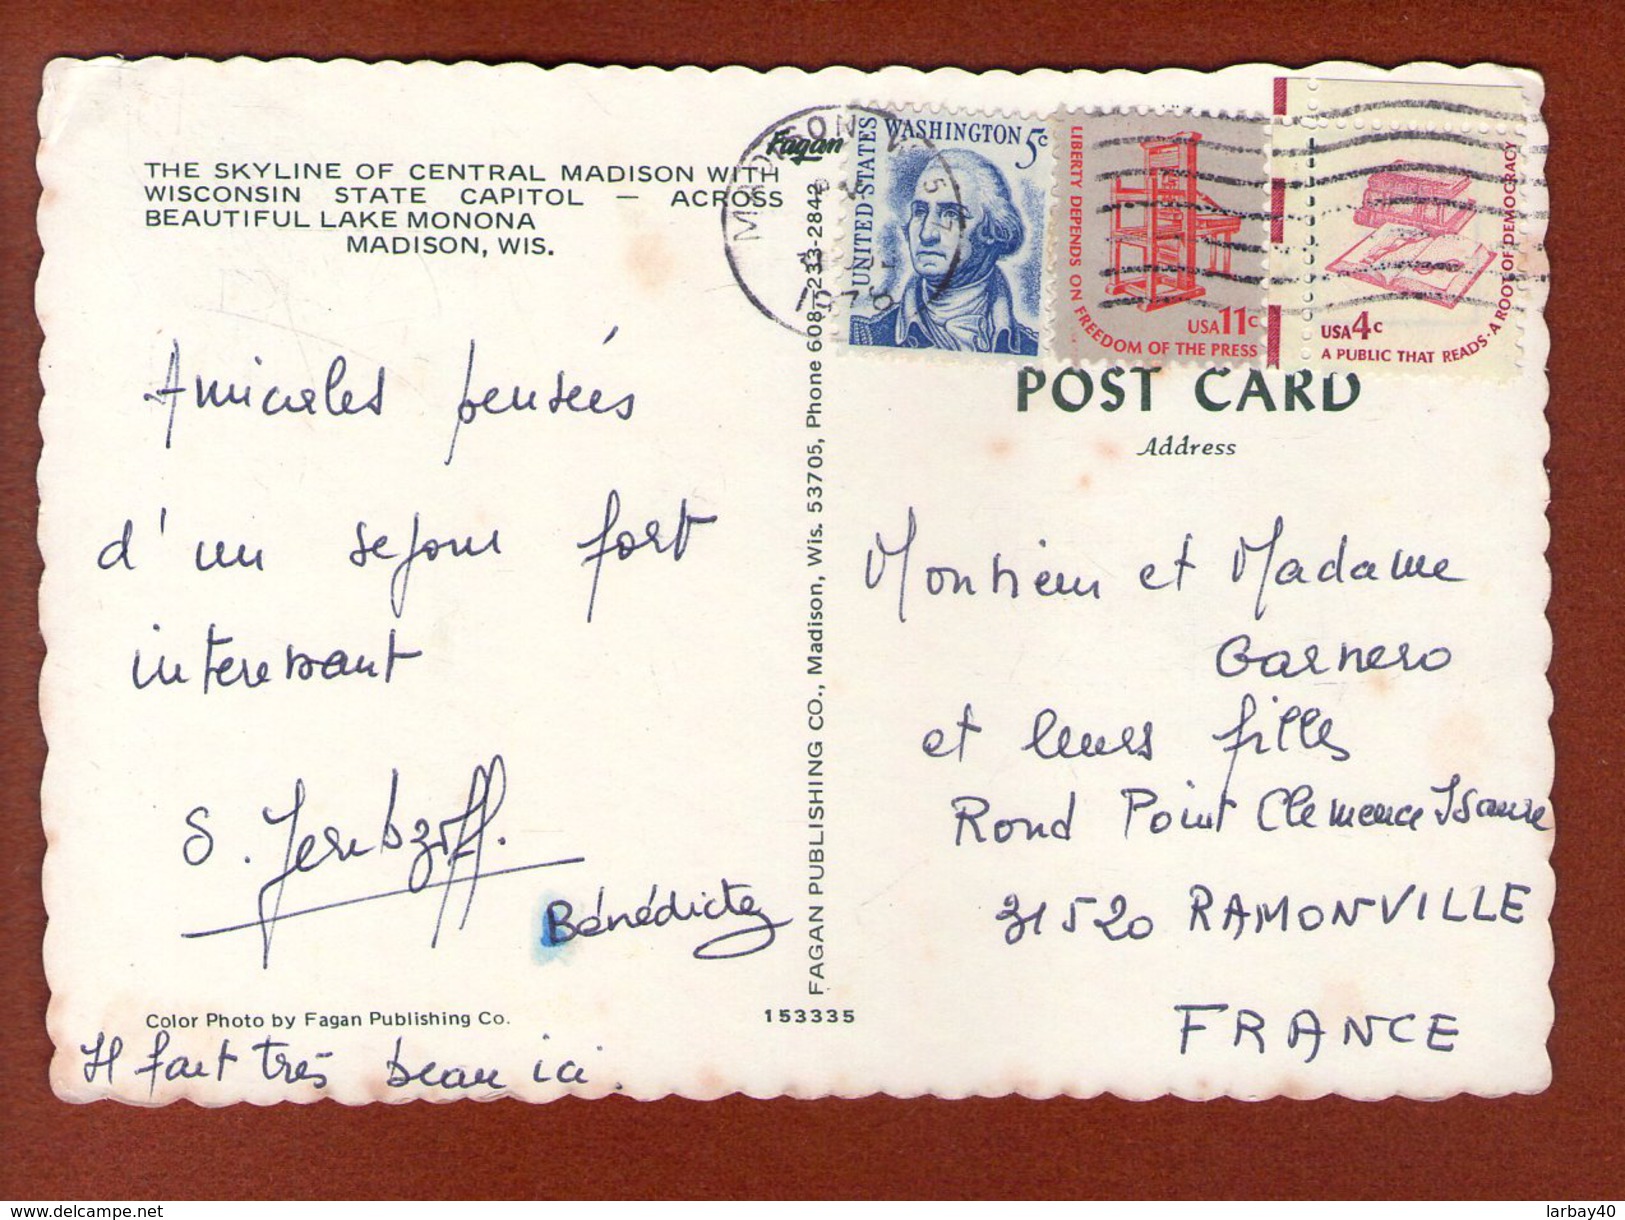 THE SKYLINE OF CENTRAL MADISON WITH
WISCONSIN STATE CAPITOL — ACROSS
BEAUTIFUL LAKE MONONA
MADISON, WIS.
Amicales pensées
d'un sejour fort
interessant
Bénédicte
Color Photo by Fagan Publishing Co.
Il fait très beau ici.
Fagan
FAGAN PUBLISHING CO., Madison, Wis. 53705, Phone 608—233-2842
153335
MADISON
1979
UNITED STATES
WASHINGTON 5c
LIBERTY DEPENDS ON FREEDOM OF THE PRESS
USA 11c
USA 4c
A PUBLIC THAT READS · A ROOT OF DEMOCRACY
POST CARD
Address
Monsieur et Madame
Garnero
et leurs filles
Rond Point Clemence Isaure
31520 RAMONVILLE
FRANCE
www.delcampe.net
larbay40